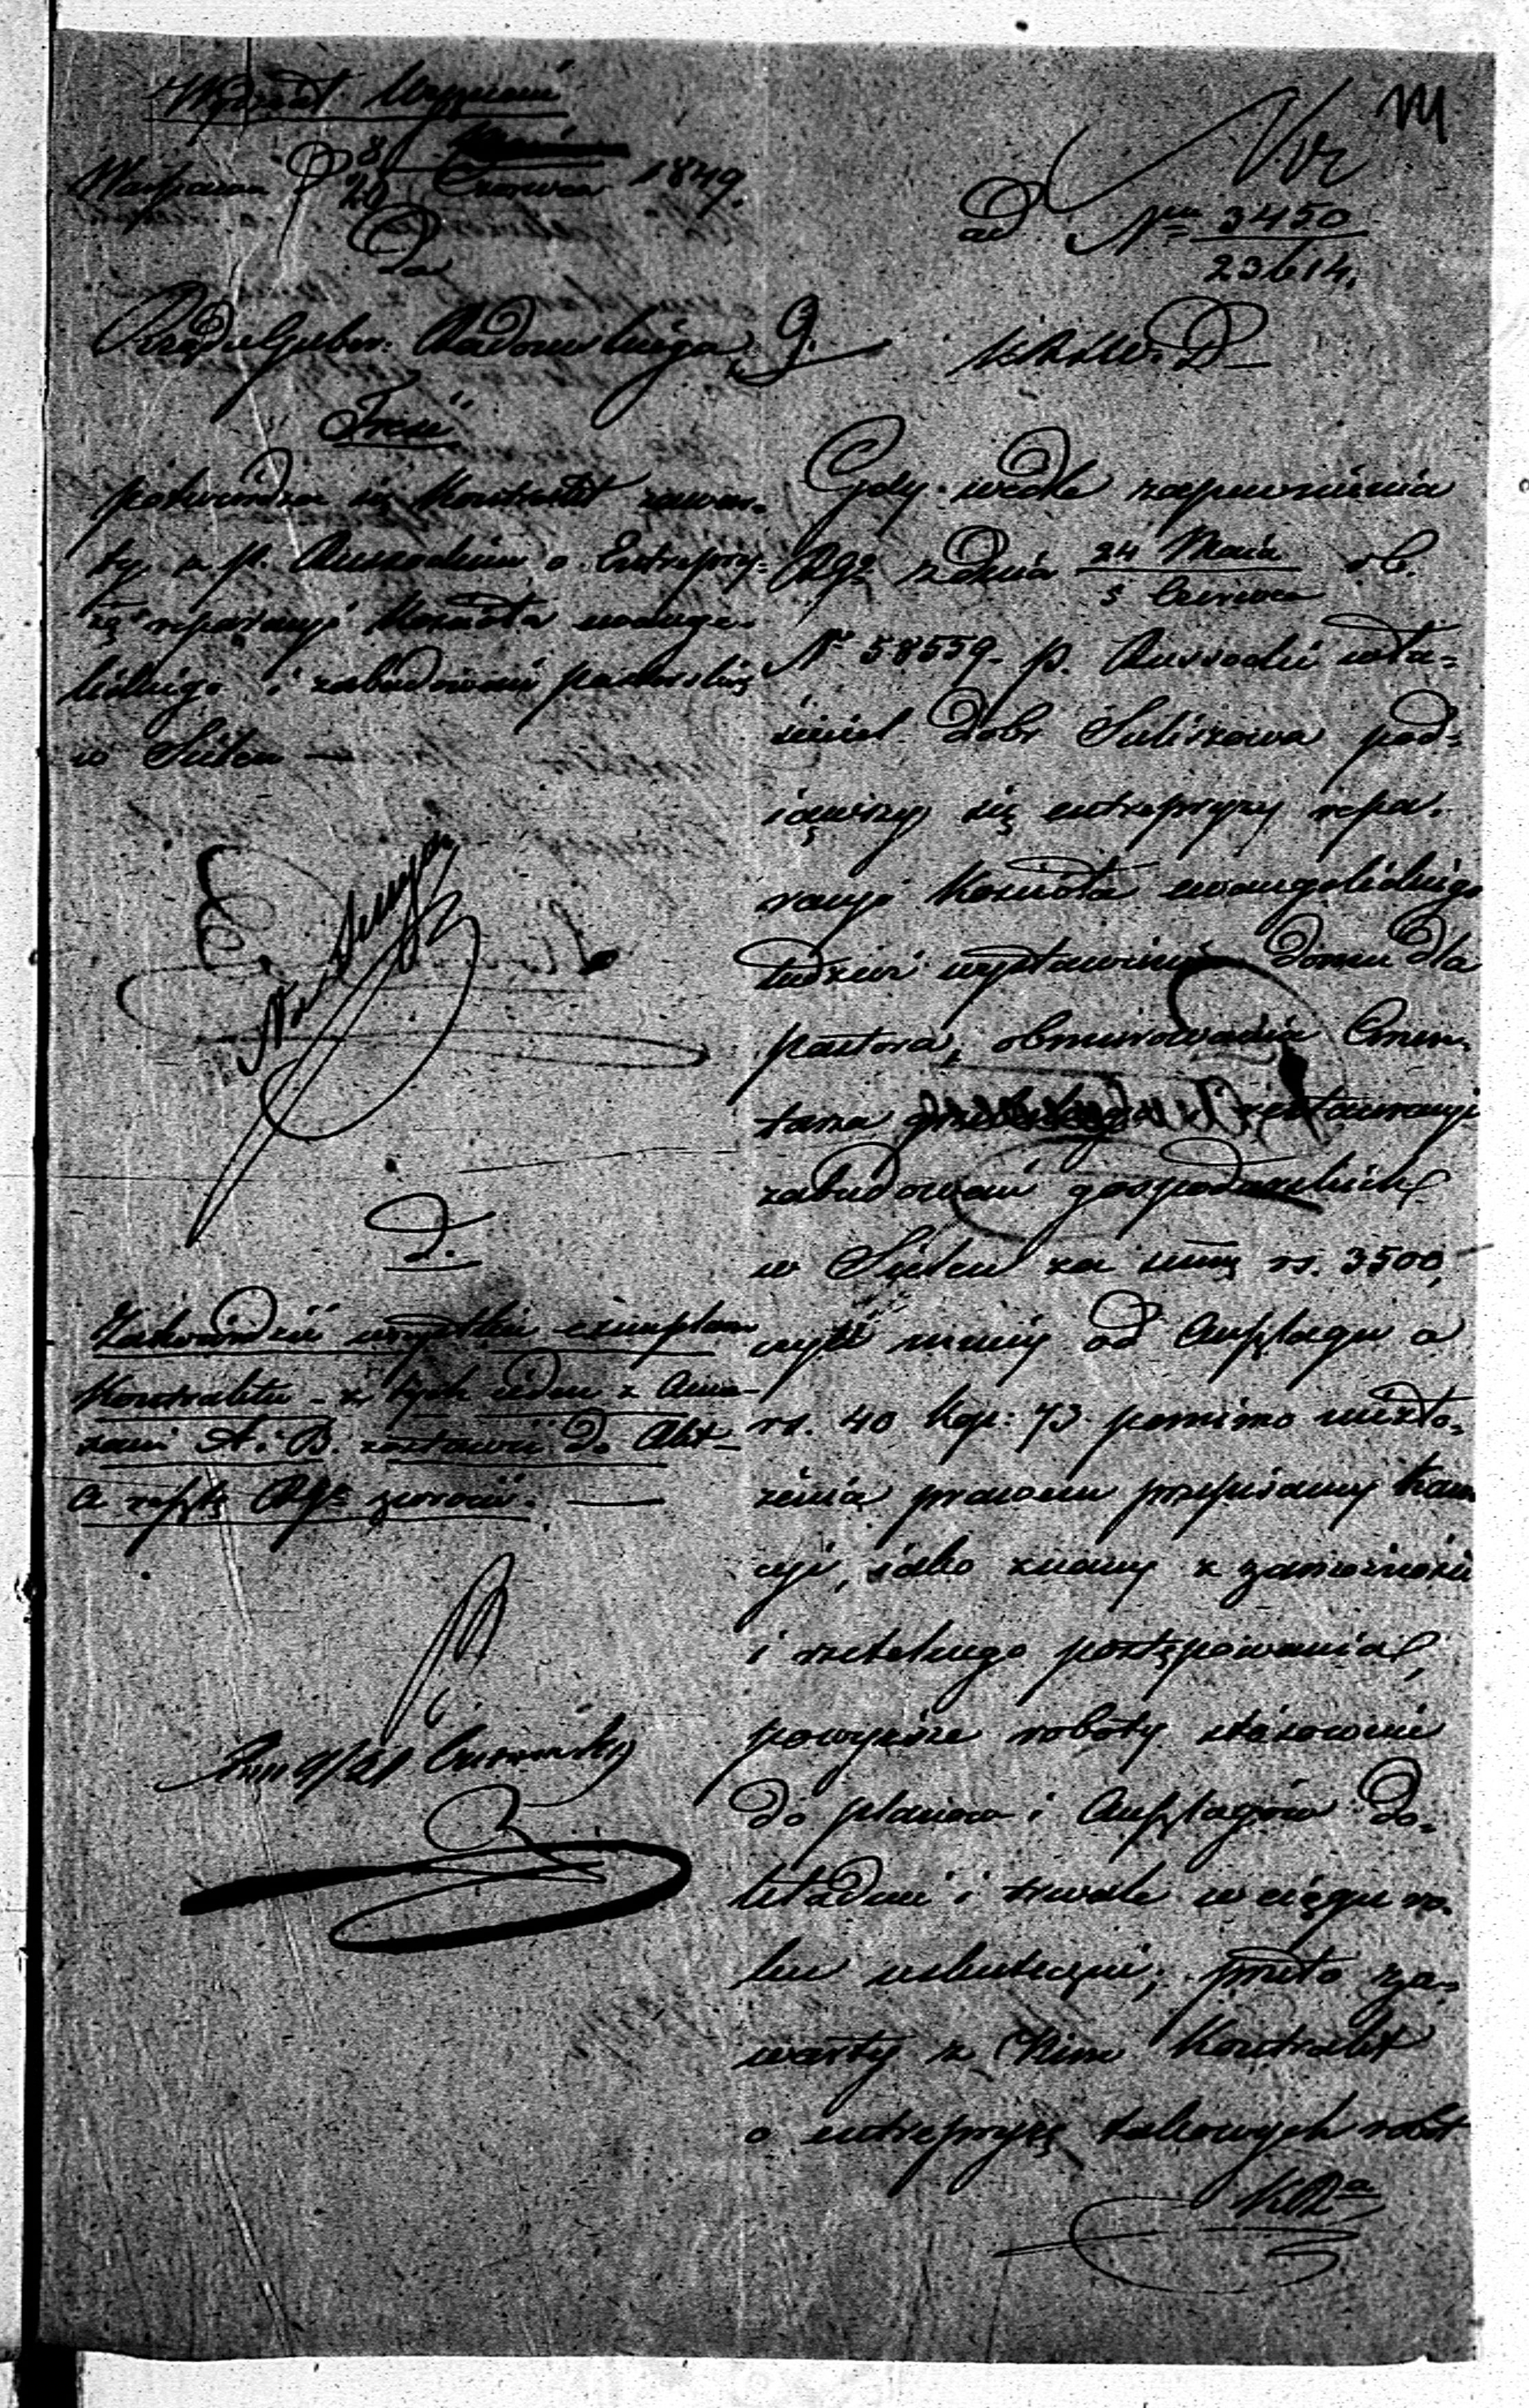 Wydział Wyznań
Warszawa d. 8/20 Czerwca 1849.
Do
Rządu Guber: Radomskiego
Treść
potwierdza się Kontrakt zawar-
ty z p. Russockim o Entrepry-
zę reparacyi Kościoła ewange-
lickiego i zabudowań pastorskich
w Sielcu —
D.
Zatwierdzić wszystkie exemplarze
Kontraktu – z tych jeden z Anne-
xami A i B. zostawić do Akt –
a resztę Rządo zwrócić. —
111
Nr
ad Nrum 3450/23614.
K.R.S.W. i D.
Gdy wedle zapewnienia
Rgo z dnia 24 Maja/5 Czerwca r.b.
No 58559 – p. Russocki wła-
ściciel dóbr Suliszowa pod-
iąwszy się entrepryzy repa-
racyi Kościoła ewangelickiego
tudzież wystawienia domu dla
pastora, obmurowania Cmen-
tarza restauracyi
zabudowań gospodarskich
w Sielcu za sumę rs. 3500,
czyli mniej od Anszlagu o
rs. 40 kop: 73 pomimo niezło-
żenia prawem przepisanej kau-
cyi, iako znany z zamożności
i rzetelnego postępowania,
powyższe roboty stósownie
do planów i Anszlagów do-
kładnie i trwale w ciągu ro-
ku uskuteczni; przeto za-
warty z Nim Kontrakt
o entrepryzę takowych robót
K.Ra